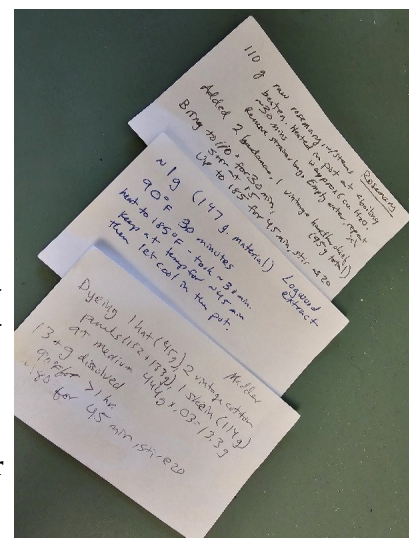 Rosemary
110 g raw rosemary w/stems
beaten. Heated in pot at aboiling
~30 mins w approx 6 c H2O.
Remove strainer bags. Empty water, repeat
Added 2 bandanas, 1 vintage
(95g total)
Bring to 110 for 30 min,
stir at 15
Up to 185 for 45 min, stir @ 20
Logwood
extract
~1g (147 g. material)
90°F 30 minutes
heat to 185°F - took ~30 min.
Keep at temp for ~45 min
Then let cool in the pot.
Madder
Dyeing 1 hat (45g), 2 vintage cotton
panels (152 + 133g), 1 skein (114g)
at medium 444g x .03 = 13.3g
13+g dissolved
for >1 hr
180 for 45 min, stir @ 20